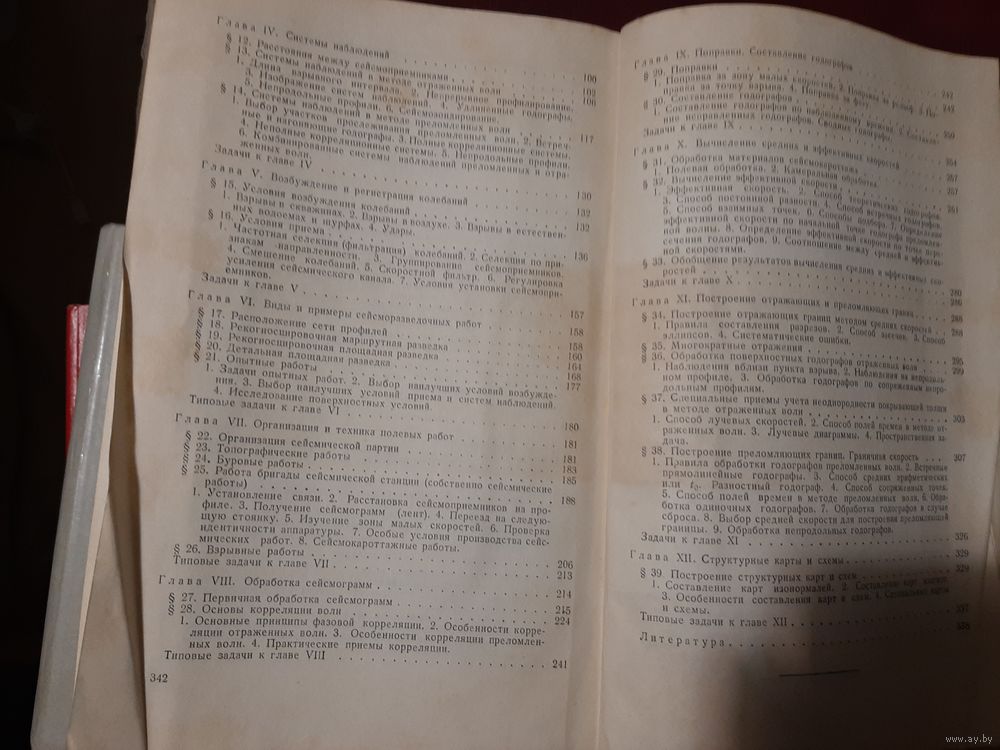 Глава IV. Системы наблюдений
§ 12. Расстояния между сейсмоприемниками 100
§ 13. Системы наблюдений в методе отраженных волн 102
1. Длина взрывного интервала. 2. Непрерывное профилирование.
3. Изображение систем наблюдений. 4. Удлиненные годографы.
5. Непродольные профили. 6. Сейсмозондирование. 106
§ 14. Системы наблюдений в методе преломленных волн 117
1. Выбор участков прослеживания преломленных волн. 2. Встреч-
ные и нагоняющие годографы. 3. Полные корреляционные системы.
4. Неполные корреляционные системы. 5. Непродольные профили.
6. Комбинированные системы наблюдений преломленных и отра-
женных волн.
Задачи к главе IV 130
Глава V. Возбуждение и регистрация колебаний 132
§ 15. Условия возбуждения колебаний 132
1. Взрывы в скважинах. 2. Взрывы в воздухе. 3. Взрывы в естествен-
ных водоемах и шурфах. 4. Удары.
§ 16. Условия приема 136
1. Частотная селекция (фильтрация) колебаний. 2. Селекция по при-
знакам направленности. 3. Группирование сейсмоприемников.
4. Смешение колебаний. 5. Скоростной фильтр. 6. Регулировка
усиления сейсмического канала. 7. Условия установки сейсмопри-
емников.
Задачи к главе V 157
Глава VI. Виды и примеры сейсморазведочных работ 158
§ 17. Расположение сети профилей 158
§ 18. Рекогносцировочная маршрутная разведка 160
§ 19. Рекогносцировочная площадная разведка 164
§ 20. Детальная площадная разведка 168
§ 21. Опытные работы 177
1. Задачи опытных работ. 2. Выбор наилучших условий возбужде-
ния. 3. Выбор наилучших условий приема и систем наблюдений.
4. Исследование поверхностных условий.
Типовые задачи к главе VI 180
Глава VII. Организация и техника полевых работ 181
§ 22. Организация сейсмической партии 181
§ 23. Топографические работы 183
§ 24. Буровые работы 185
§ 25. Работа бригады сейсмической станции (собственно сейсмические
работы) 188
1. Установление связи. 2. Расстановка сейсмоприемников на про-
филе. 3. Получение сейсмограмм (лент). 4. Переезд на следую-
щую стоянку. 5. Изучение зоны малых скоростей. 6. Проверка
идентичности аппаратуры. 7. Особые условия производства сейс-
мических работ. 8. Сейсмокароттажные работы.
§ 26. Взрывные работы 206
Типовые задачи к главе VII 213
Глава VIII. Обработка сейсмограмм 214
§ 27. Первичная обработка сейсмограмм 245
§ 28. Основы корреляции волн 224
1. Основные принципы фазовой корреляции. 2. Особенности корре-
ляции отраженных волн. 3. Особенности корреляции преломлен-
ных волн. 4. Практические приемы корреляции.
Типовые задачи к главе VIII 241
342
Глава IX. Поправки. Составление годографов 242
§ 29. Поправки 242
1. Поправка за зону малых скоростей. 2. Поправка за рельеф. 3. По-
правка за точку взрыва. 4. Поправка за фазу.
§ 30. Составление годографов 250
1. Составление годографов по наблюденному времени. 2.
но исправленных годографов. Сводные годографы.
Задачи к главе IX 254
Глава X. Вычисление средних и эффективных скоростей 257
§ 31. Обработка материалов сейсмокароттажа 257
1. Полевая обработка. 2. Камеральная обработка.
§ 32. Вычисление эффективной скорости 261
1. Эффективная скорость. 2. Способ теоретических годографов.
3. Способ постоянной разности. 4. Способ встречных годографов.
5. Способ взаимных точек. 6. Способы подбора. 7. Определение
эффективной скорости по начальной точке годографа преломлен-
ной волны. 8. Определение эффективной скорости по точке пере-
сечения годографов. 9. Соотношения между средней и эффектив-
ной скоростями.
§ 33. Обобщение результатов вычисления средних и эффективных ско-
ростей 280
Задачи к главе X 286
Глава XI. Построение отражающих и преломляющих границ 288
§ 34. Построение отражающих границ методом средних скоростей 288
1. Правила составления разрезов. 2. Способ засечек. 3. Способ
эллипсов. 4. Систематические ошибки.
§ 35. Многократные отражения 295
§ 36. Обработка поверхностных годографов отраженных волн 299
1. Наблюдения вблизи пункта взрыва. 2. Наблюдения на непродоль-
ном профиле. 3. Обработка годографов по сопряженным непро-
дольным профилям.
§ 37. Специальные приемы учета неоднородности покрывающей толщи
в методе отраженных волн 303
1. Способ лучевых скоростей. 2. Способ полей времен в методе от-
раженных волн. 3. Лучевые диаграммы. 4. Пространственная за-
дача.
§ 38. Построение преломляющих границ. Граничная скорость 307
1. Правила обработки годографов преломленных волн. 2. Встречные
прямолинейные годографы. 3. Способ средних арифметических
или t₀. Разностный годограф. 4. Способ сопряженных точек.
5. Способ полей времен в методе преломленных волн. 6. Обра-
ботка одиночных годографов. 7. Обработка годографов в случае
сброса. 8. Выбор средней скорости для построения преломляющей
границы. 9. Обработка непродольных годографов.
Задачи к главе XI 326
Глава XII. Структурные карты и схемы 329
§ 39. Построение структурных карт и схем 329
1. Составление карт изонормалей. 2. Составление карт изогипс.
3. Особенности составления карт и схем. 4. Специальные карты
и схемы.
Типовые задачи к главе XII 337
Литература 338
www.ay.by